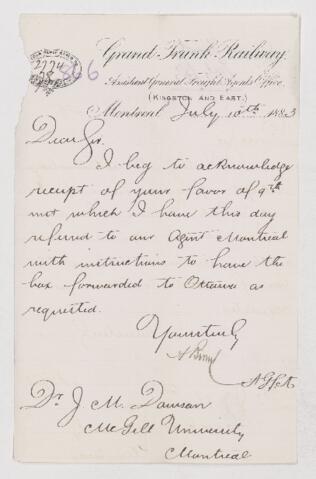 2774
866
Grand Trunk Railway.
Assistant General Freight Agent's Office.
(KINGSTON AND EAST.)
Montreal July 10th 1883
Dear Sir.
I beg to acknowledge
receipt of your favor of 9th
inst which I have this day
referred to our Agent Montreal
with instructions to have the
box forwarded to Ottawa as
requested.
Yours truly
AGFA
Dr J M. Dawson
McGill University
Montreal